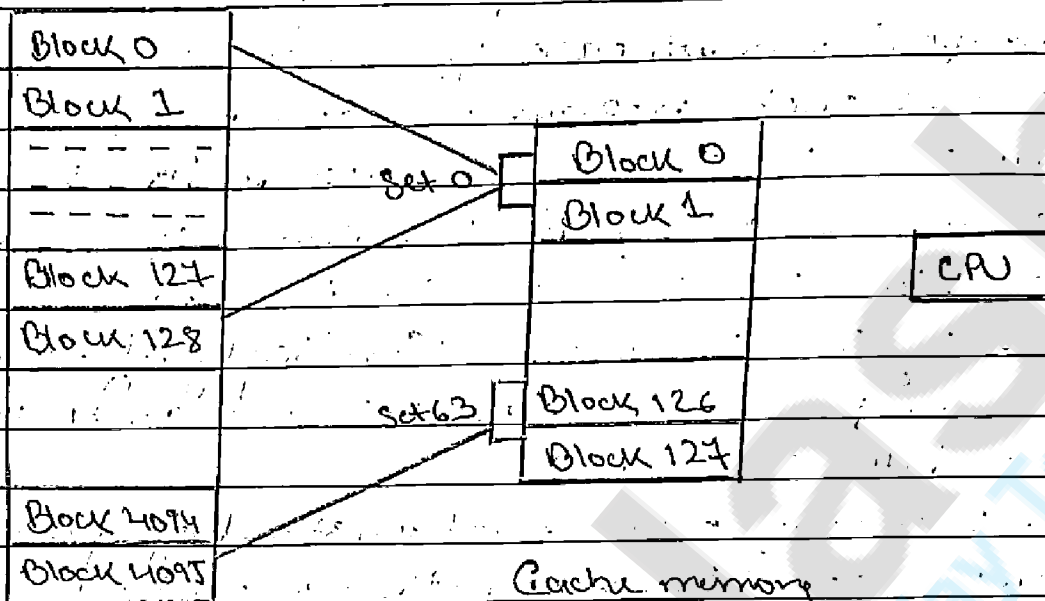 Block 0
Block 1
Block 127
Block 128
Block 4094
Block 4095
Set 0
Set 63
Block 0
Block 1
Block 126
Block 127
CPU
Cache memory